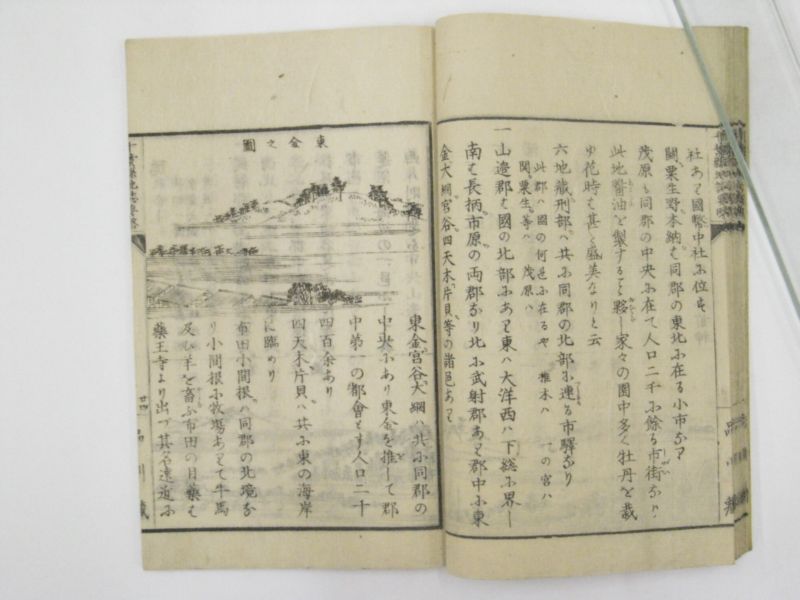 社あり國幣中社に位す
関、粟生野、本納は同郡の東北に在る小市なり
茂原は同郡の中央に在て人口二千に餘る市街なり
此地醤油を製すること夥し家々の園中多く牡丹を栽
ゆ花時は甚だ盛美なりと云
六地蔵、刑部は共に同郡の北部に連る市驛なり
此郡は國の何邊に在るや 一の宮は
関、粟生等は 茂原は
一山邉郡は國の北部にあり東は大洋西は下総に界し
南は長柄、市原の両郡なり北に武射郡あり郡中に東
金、大網、宮谷、四天木、片貝等の諸邑あり
東金之圖
東金、宮谷、大網は共に同郡の
中央にあり東金を推して郡
中第一の都會とす人口二千
四百余あり
四天木、片貝は共に東の海岸
に臨めり
布田、小間根は同郡の北境な
り小間根に牧場ありて牛馬
及ひ羊を畜ふ布田の目藥は
藥王寺より出づ其名遠近に